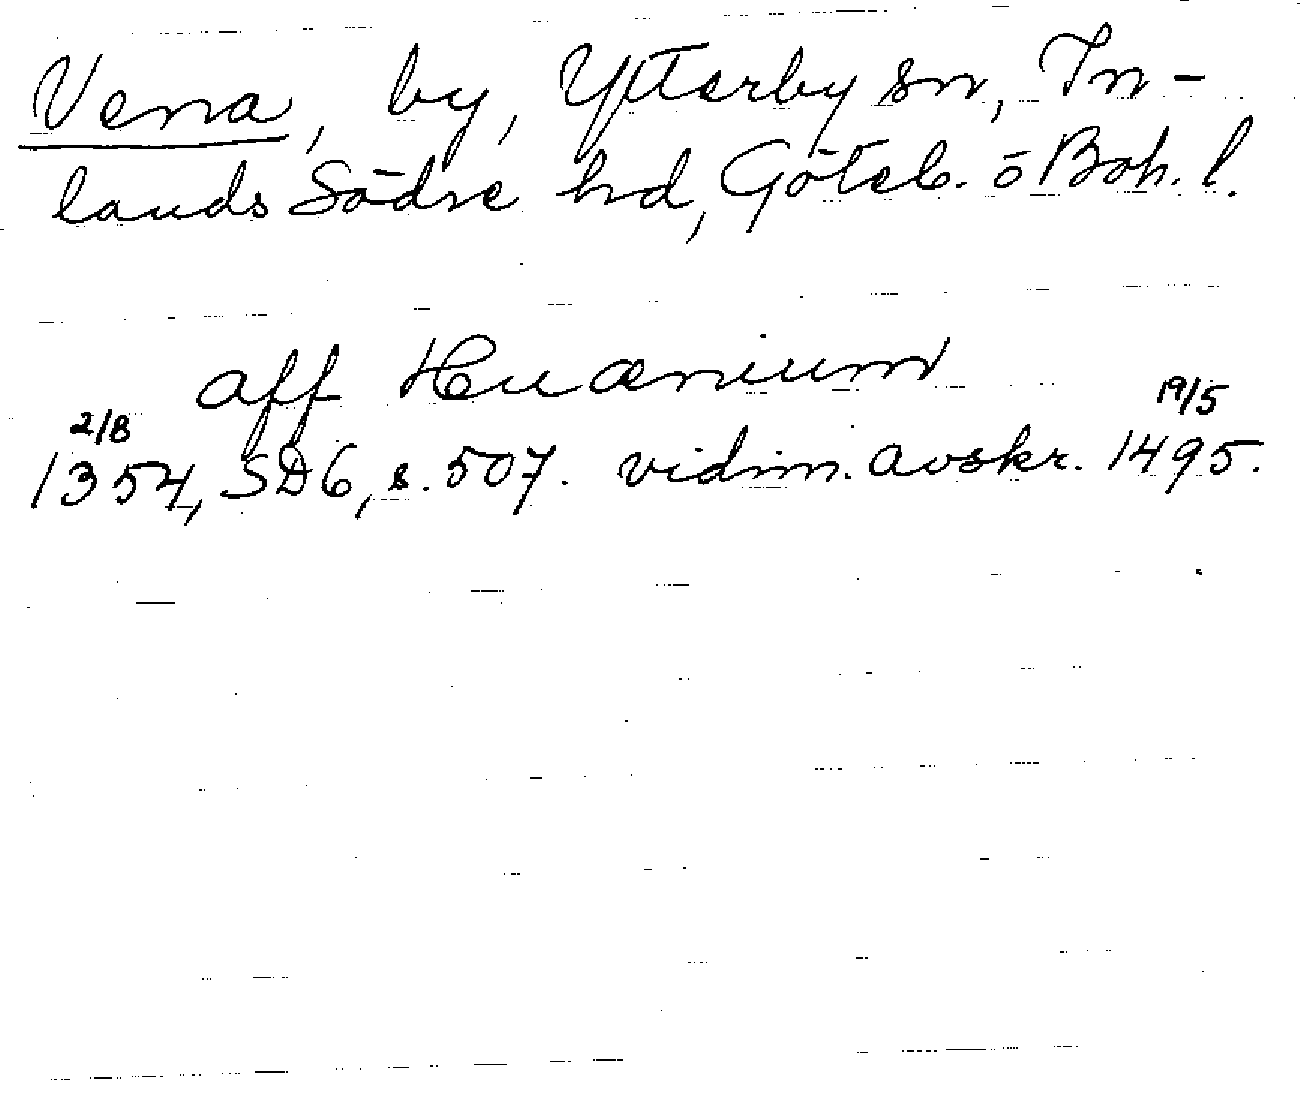 Vena, by, Ytterby sn, In-
lands Södre hd, Göteb. ō Boh. l.
aff Huænium
2/8 19/5
1354, SD6, s. 507. vidim. avskr. 1495.